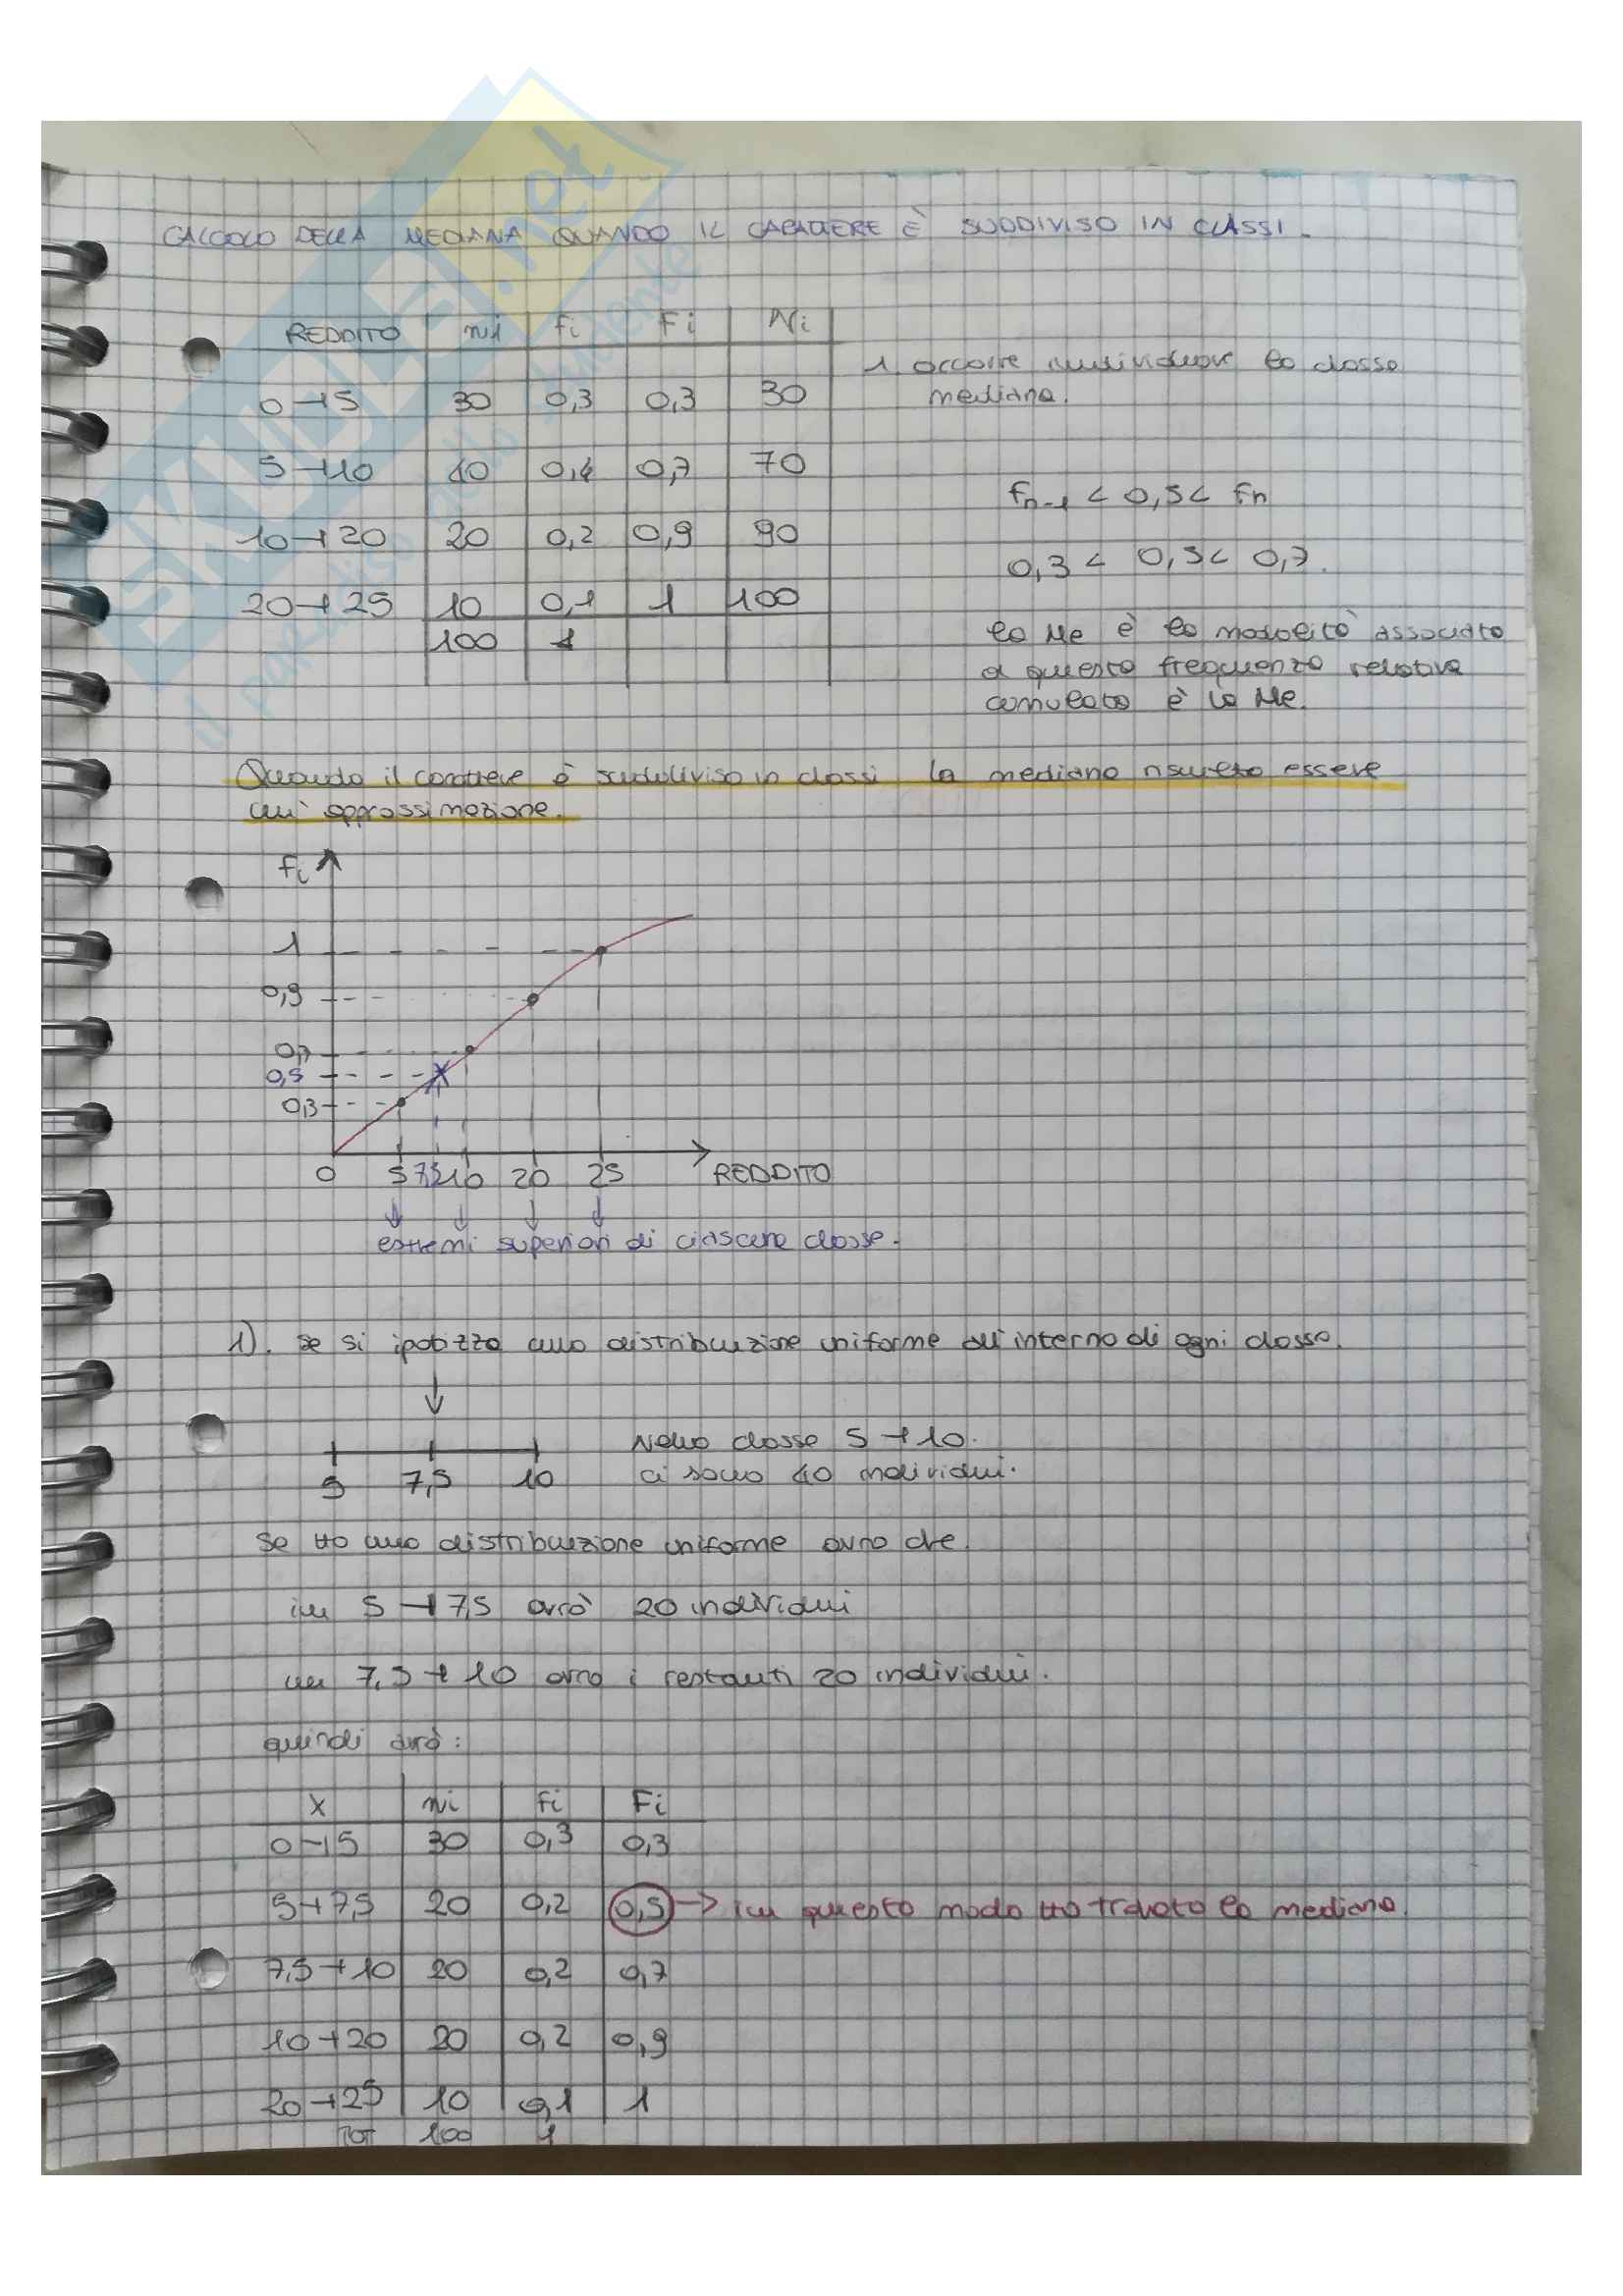 SKUOLA.net
il paradiso dello studente
CALCOLO DELLA MEDIANA QUANDO IL CARATTERE È SUDDIVISO IN CLASSI.
REDDITO ni fi Fi Ni
0⊣5 30 0,3 0,3 30
5⊣10 40 0,4 0,7 70
10⊣20 20 0,2 0,9 90
20⊣25 10 0,1 1 100
100 1
1 occorre individuare la classe
mediana.
Fn-1 < 0,5 < Fn
0,3 < 0,5 < 0,7.
la Me è la modalità associata
a questa frequenza relativa
cumulata è la Me.
Quando il carattere è suddiviso in classi la mediana risulta essere
un'approssimazione.
Fi
1
0,9
0,7
0,5
0,3
0 5 7,5 10 20 25 REDDITO
estremi superiori di ciascuna classe.
1). se si ipotizza una distribuzione uniforme all'interno di ogni classe.
5 7,5 10
Nella classe 5⊣10.
ci sono 40 individui.
Se ho una distribuzione uniforme avrò che
in 5⊣7,5 avrò 20 individui
in 7,5⊣10 avrò i restanti 20 individui.
quindi avrò:
X ni fi Fi
0⊣5 30 0,3 0,3
5⊣7,5 20 0,2 0,5 → in questo modo ho trovato la mediana.
7,5⊣10 20 0,2 0,7
10⊣20 20 0,2 0,9
20⊣25 10 0,1 1
TOT 100 1